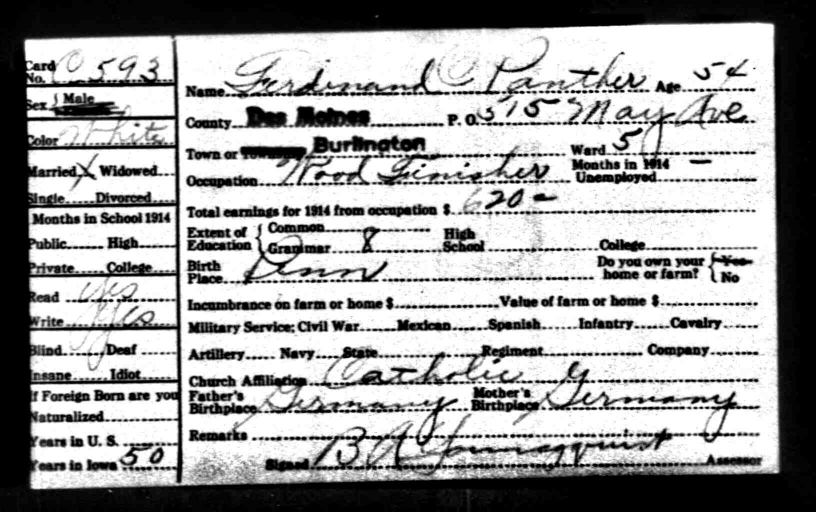 Card No. C 593
Sex { Male
Color White
Married X Widowed
Single Divorced
Months in School 1914
Public High
Private College
Read yes
Write yes
Blind Deaf
Insane Idiot
If Foreign Born are you
Naturalized
Years in U. S.
Years in Iowa 50
Name Ferdinand C Panther Age 54
County Des Moines P. O. 515 May Ave
Town or Burlington Ward 5
Occupation Wood Finisher Months in 1914 Unemployed —
Total earnings for 1914 from occupation $ 620 —
Extent of Education { Common Grammar 8 High School College
Birth Place Penn Do you own your home or farm? { Yes No
Incumbrance on farm or home $ Value of farm or home $
Military Service: Civil War Mexican Spanish Infantry Cavalry
Artillery Navy State Regiment Company
Church Affiliation Catholic
Father's Birthplace Germany Mother's Birthplace Germany
Remarks
Signed B A Assessor